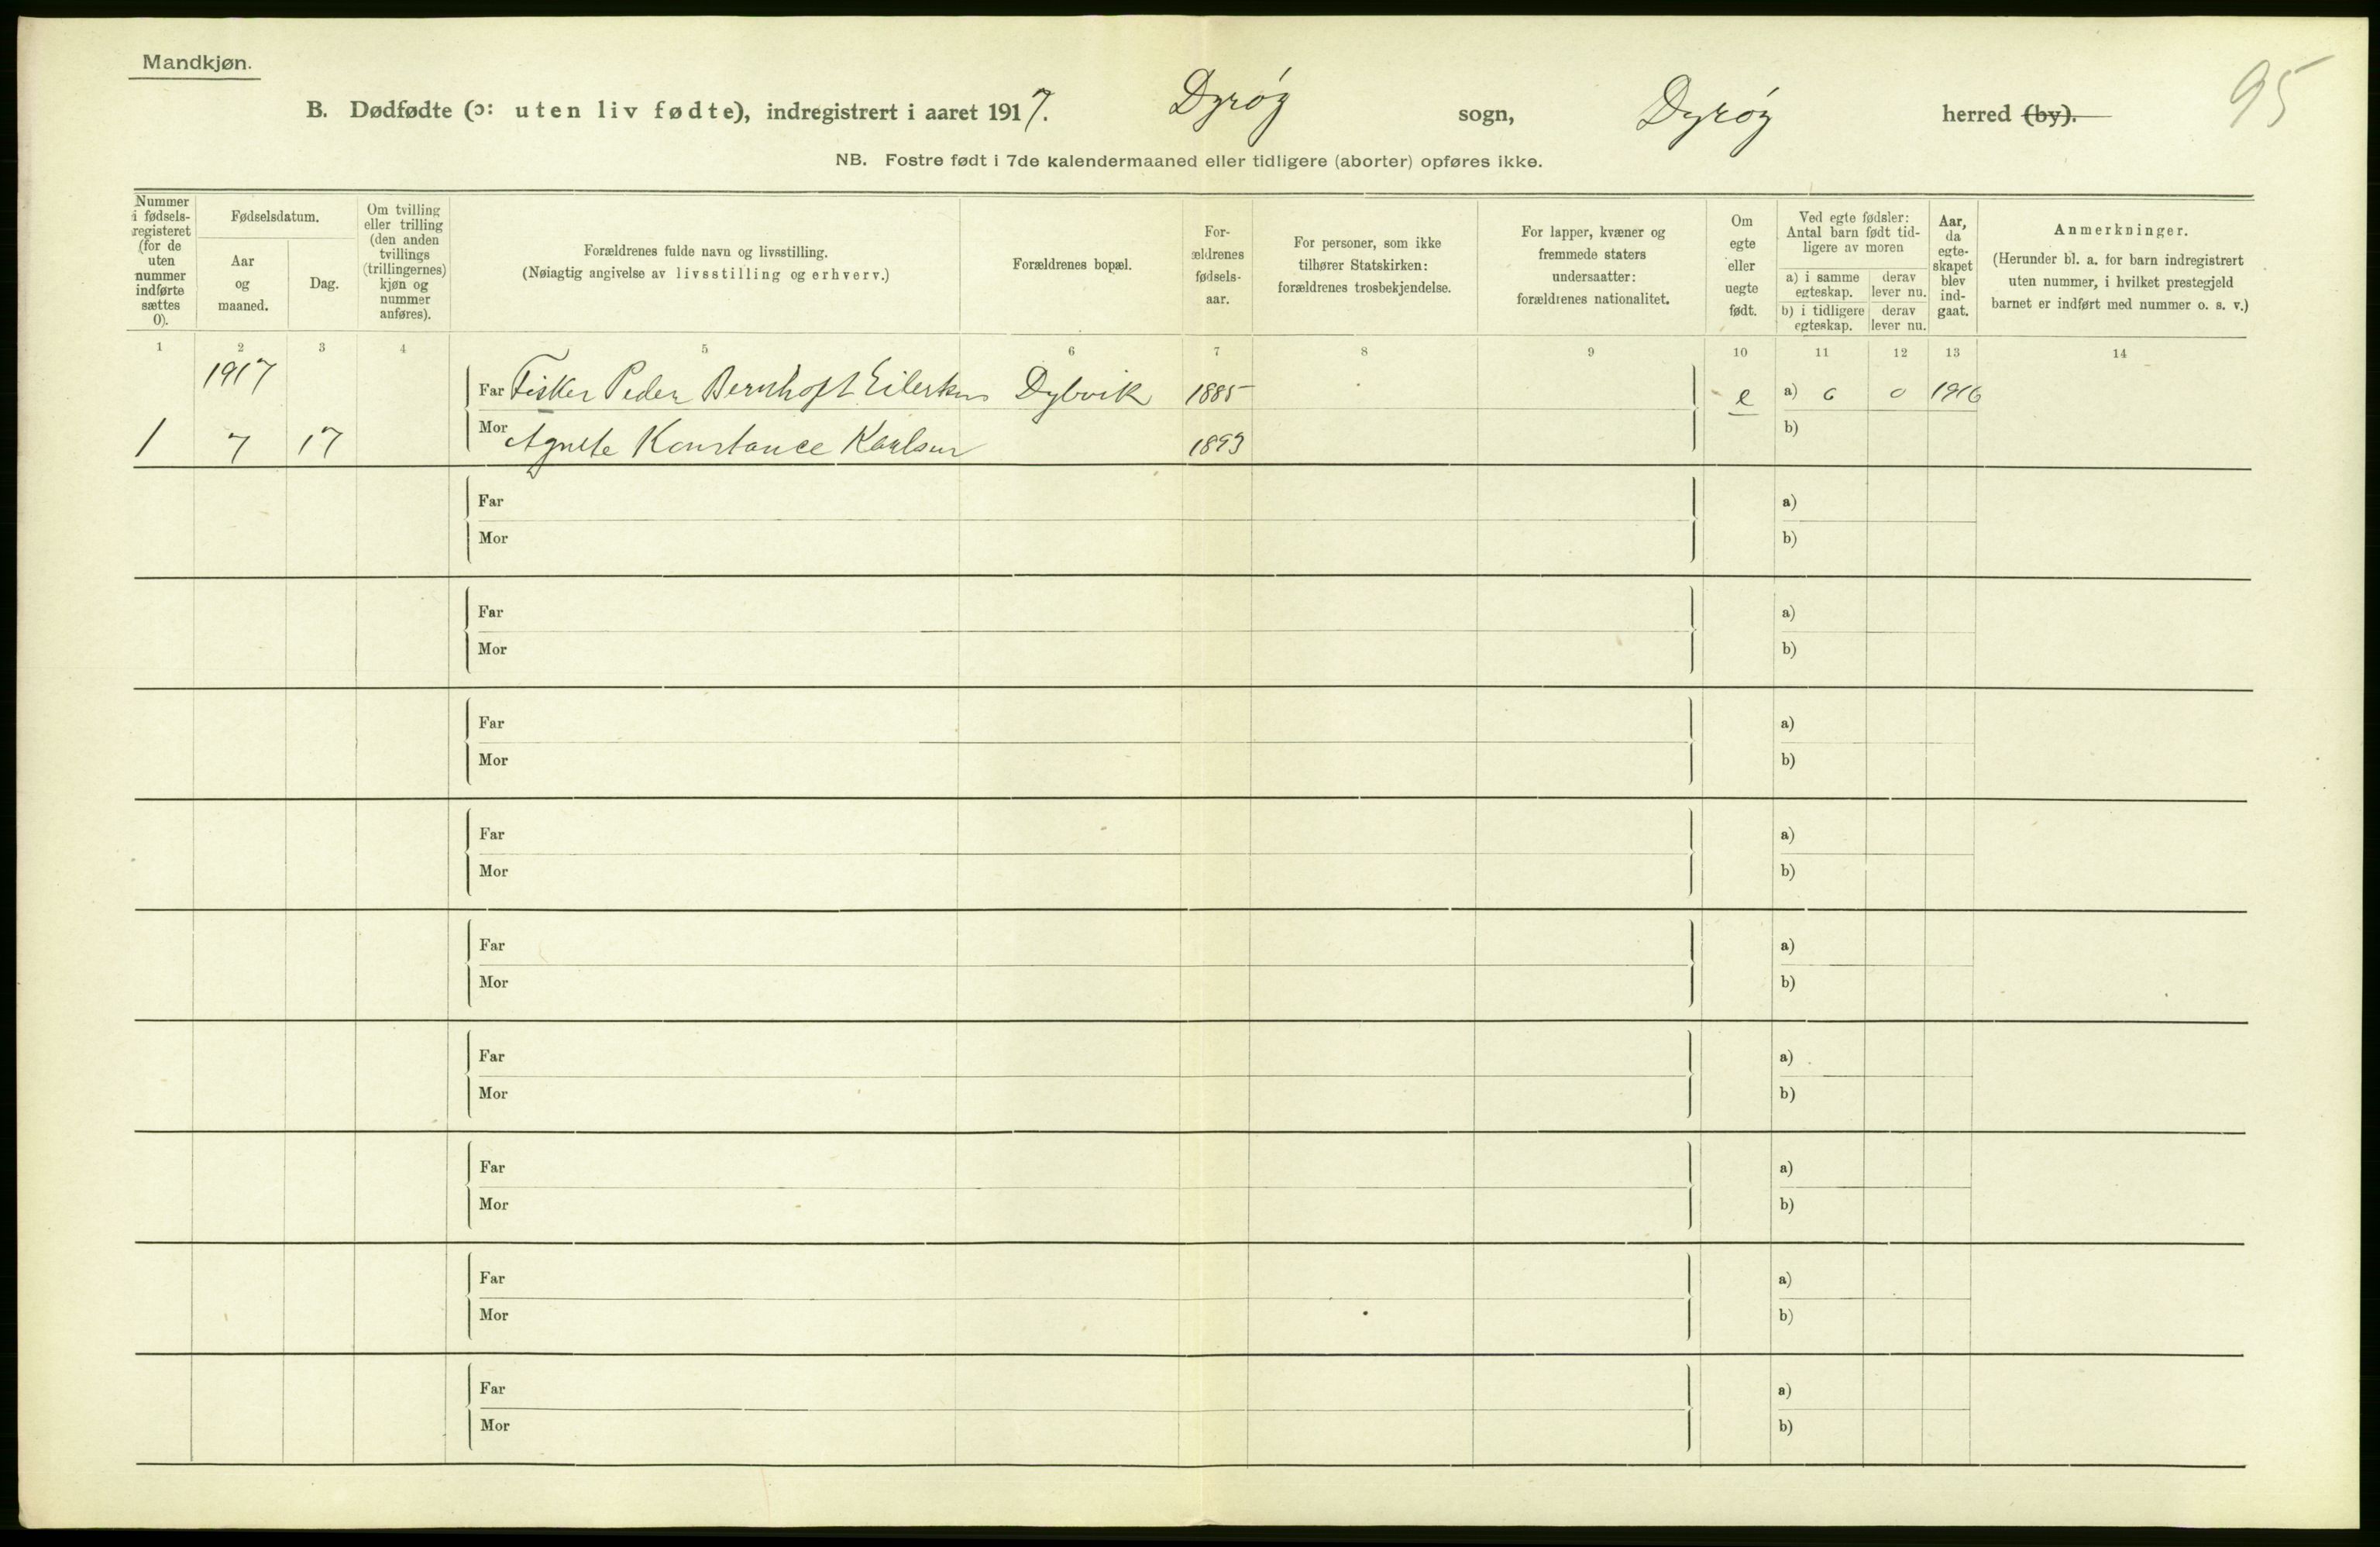 Mandkjøn.
95
B. Dødfødte (ɔ: uten liv fødte), indregistrert i aaret 1917. Dyrøy sogn, Dyrøy herred (by).
NB. Fostre født i 7de kalendermaaned eller tidligere (aborter) opføres ikke.
Nummer i fødsels-registeret (for de uten nummer indførte sættes 0).
Fødselsdatum.
Aar og maaned.
Dag.
Om tvilling eller trilling (den anden tvillings (trillingernes) kjøn og nummer anføres).
Forældrenes fulde navn og livsstilling.
(Nøiagtig angivelse av livsstilling og erhverv.)
Forældrenes bopæl.
For-ældrenes fødsels-aar.
For personer, som ikke tilhører Statskirken: forældrenes trosbekjendelse.
For lapper, kvæner og fremmede staters undersaatter: forældrenes nationalitet.
Om egte eller uegte født.
Ved egte fødsler: Antal barn født tid-ligere av moren
a) i samme egteskap.
derav lever nu.
b) i tidligere egteskap.
derav lever nu.
Aar, da egte-skapet blev ind-gaat.
Anmerkninger.
(Herunder bl. a. for barn indregistrert uten nummer, i hvilket prestegjeld barnet er indført med nummer o. s. v.)
1 2 3 4 5 6 7 8 9 10 11 12 13 14
1917
Far Fisker Peder Bernhoft Eilertsen Dybvik 1885 e a) 0 0 1916
1 7 17 Mor Agnete Konstance Karlsen 1893 b)
Far a)
Mor b)
Far a)
Mor b)
Far a)
Mor b)
Far a)
Mor b)
Far a)
Mor b)
Far a)
Mor b)
Far a)
Mor b)
Far a)
Mor b)
Far a)
Mor b)